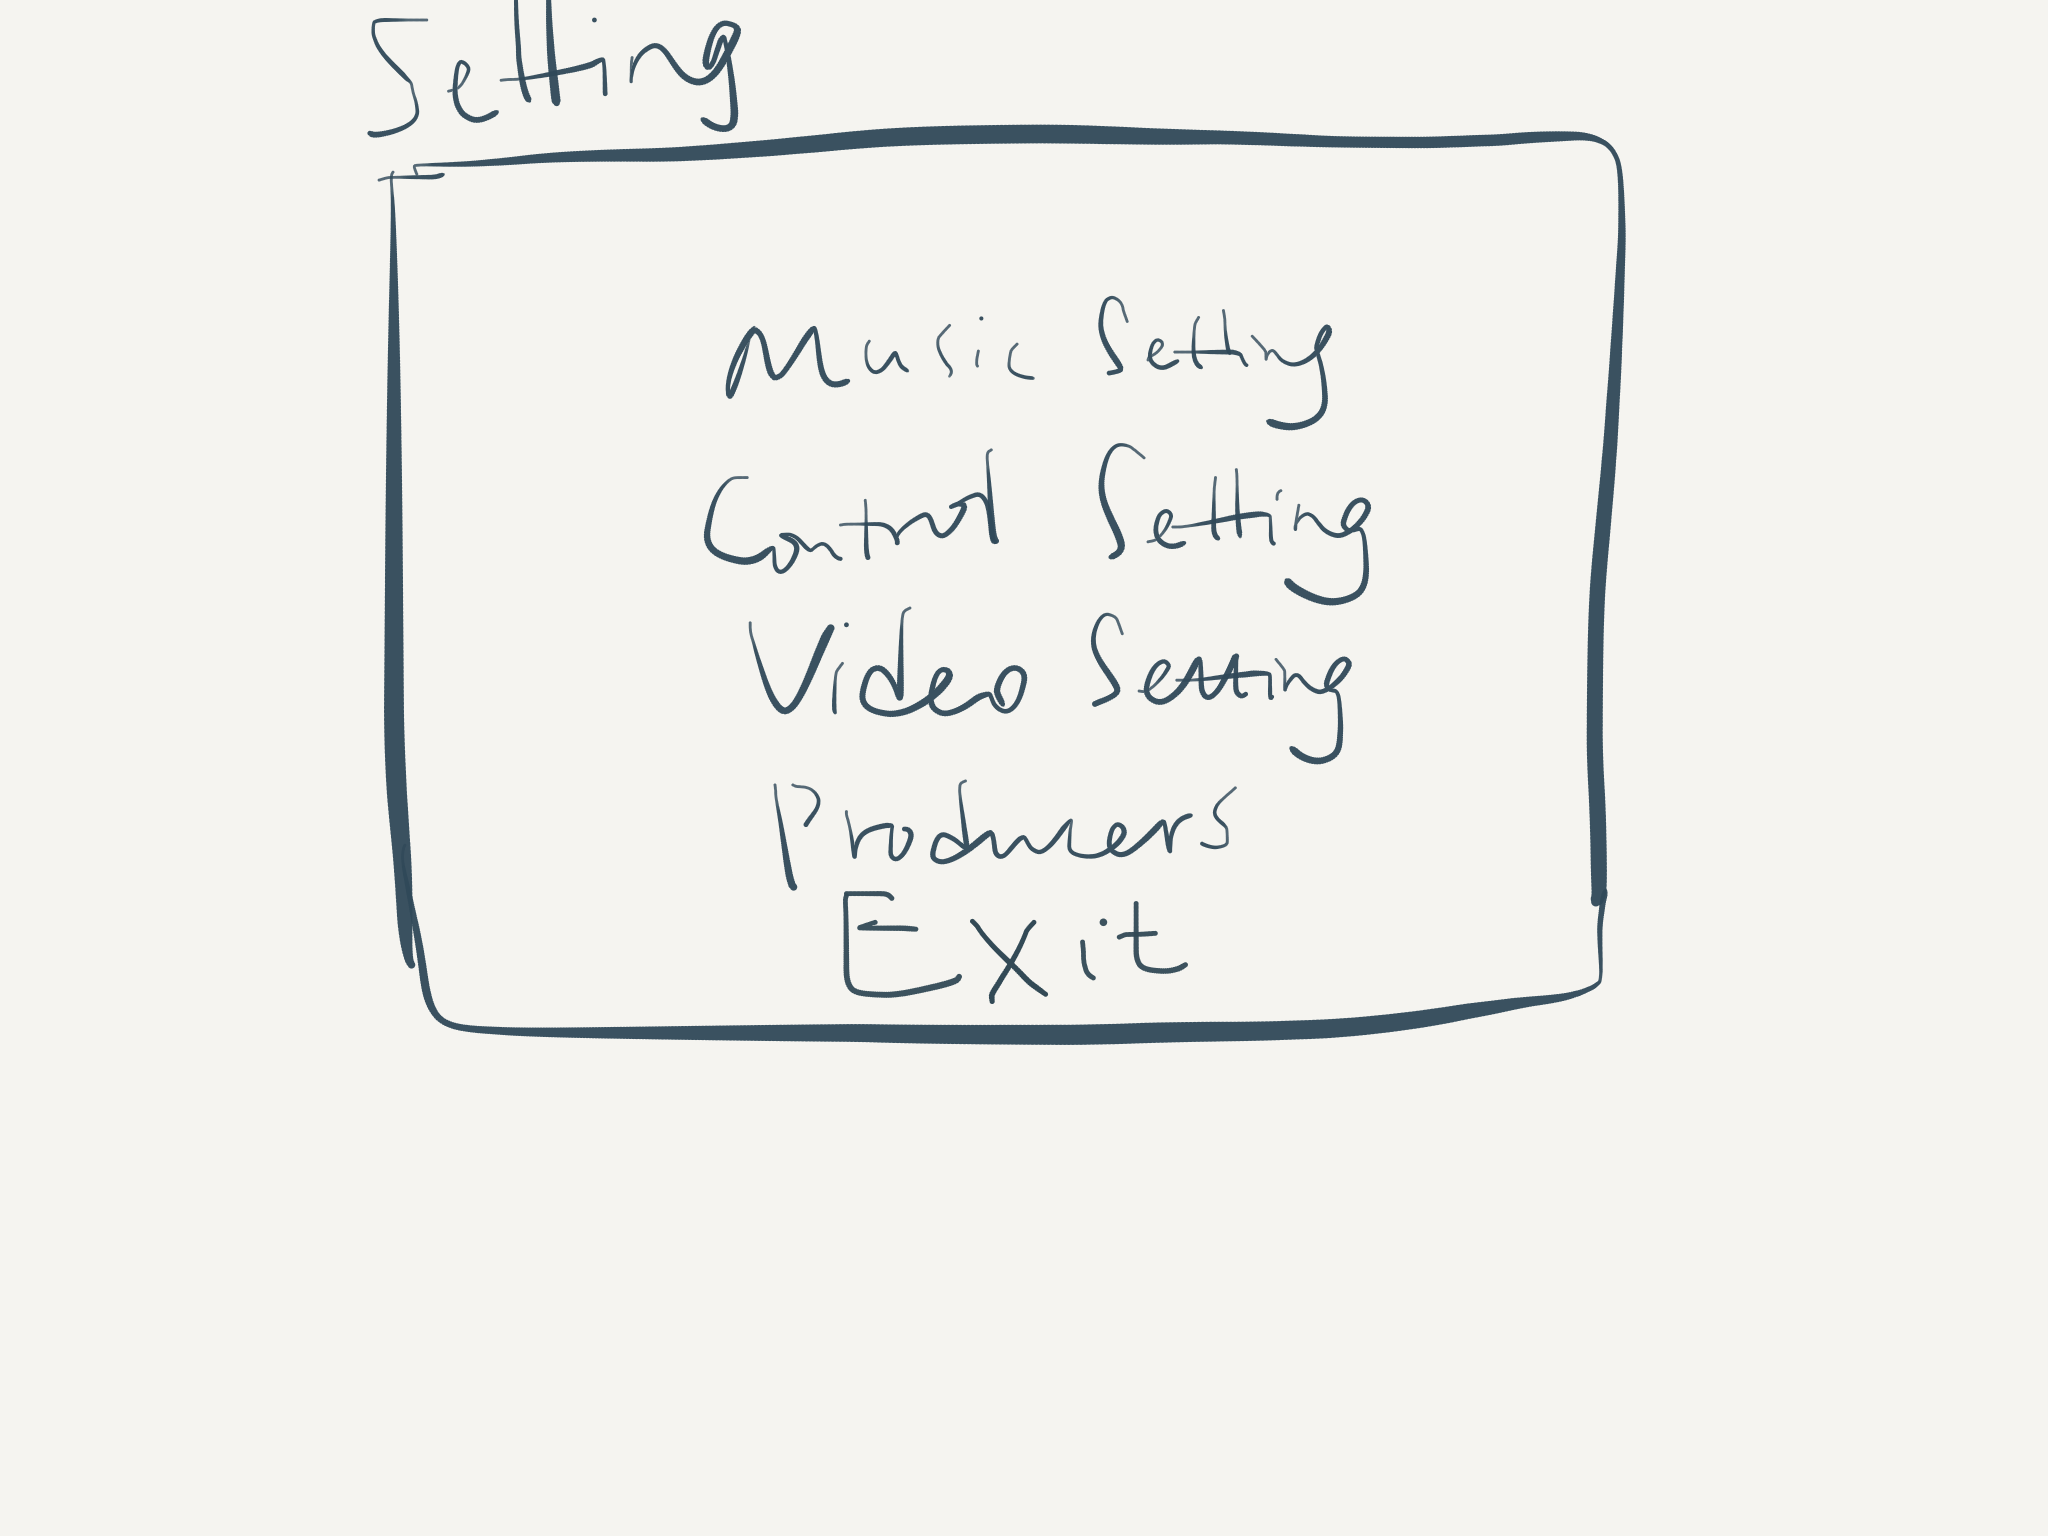 Setting
Music Setting
Control Setting
Video Setting
Producers
Exit